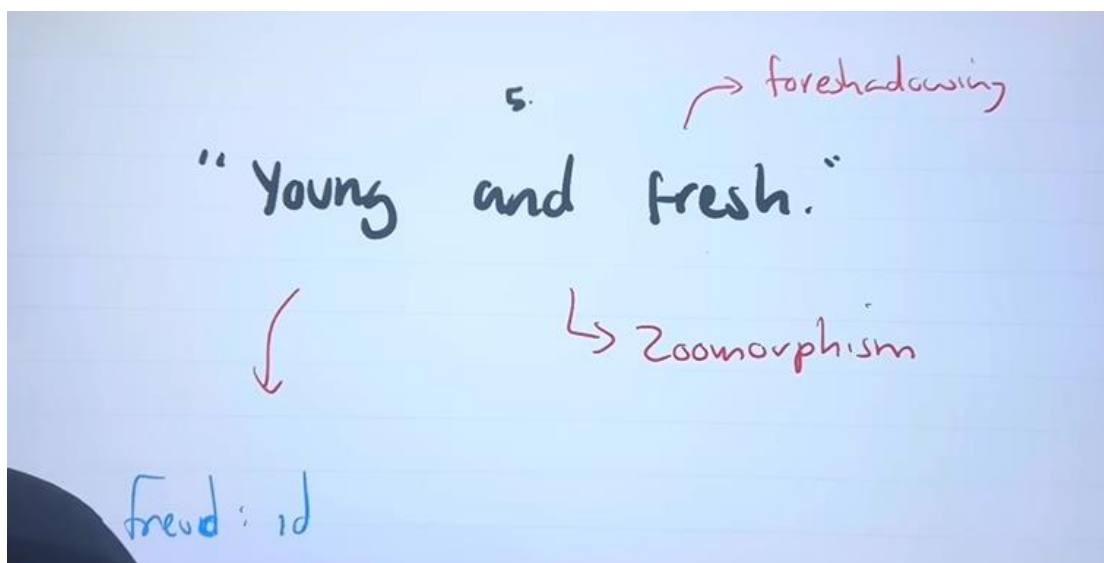 foreshadowing
5.
"Young and fresh."
Zoomorphism
Freud: id